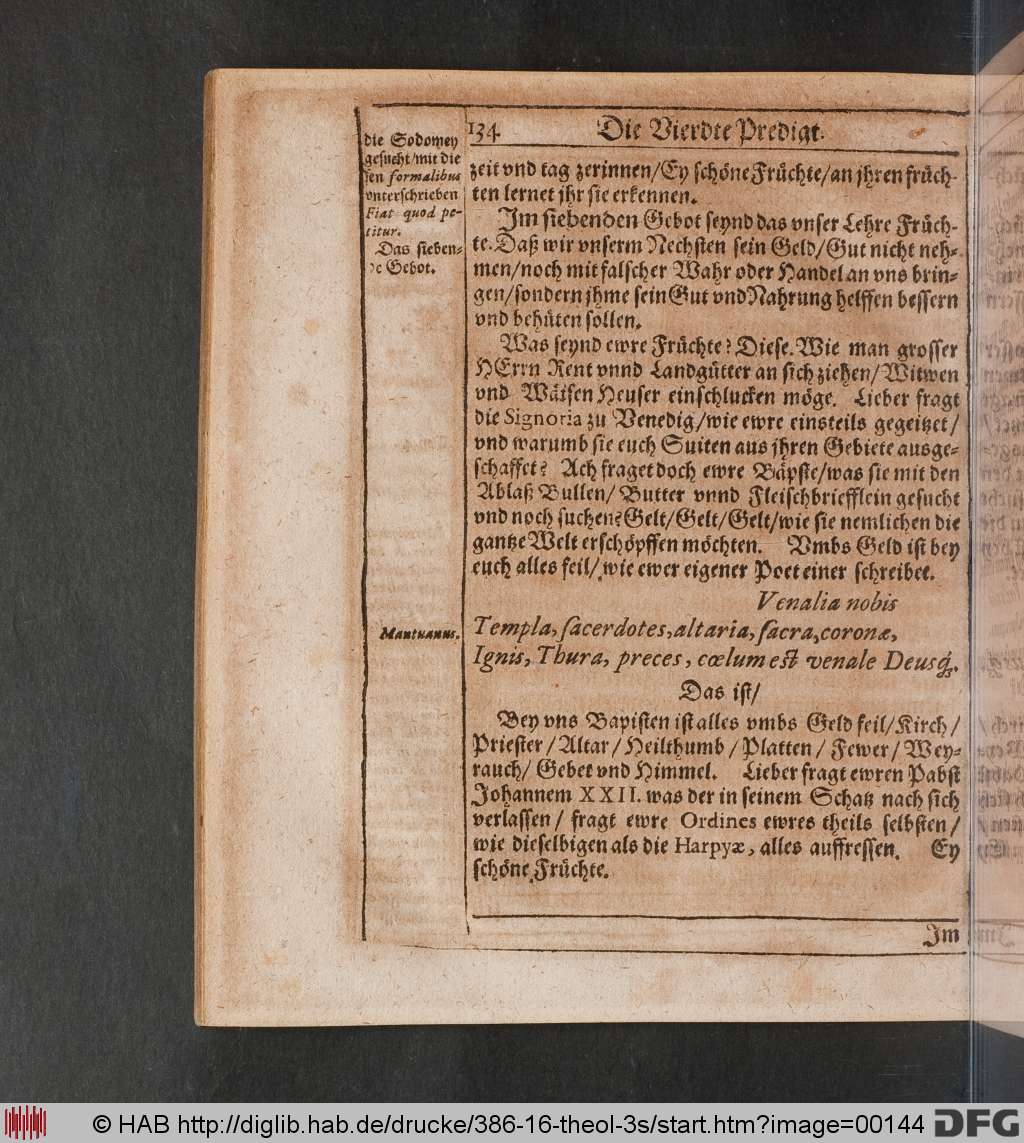 134. Die Vierdte Predigt.
die Sodomey
gesucht/mit die
sen formalibus
vnterschrieben
Fiat quod pe-
titur.
Das sieben-
de Gebot.
zeit vnd tag zerinnen/Ey schöne Früchte/an jhren früch-
ten lernet jhr sie erkennen.
Im siebenden Gebot seynd das vnser Lehre Früch-
te. Daß wir vnserm Nechsten sein Geld/Gut nicht neh-
men/noch mit falscher Wahr oder Handel an vns brin-
gen/sondern jhme sein Gut vnd Nahrung helffen bessern
vnd behüten sollen.
Was seynd ewre Früchte? Diese. Wie man grosser
HErrn Rent vnnd Landgütter an sich ziehen/Witwen
vnd Wäisen Heuser einschlucken möge. Lieber fragt
die Signoria zu Venedig/wie ewre einsteils gegeitzet/
vnd warumb sie euch Suiten aus jhren Gebiete ausge-
schaffet? Ach fraget doch ewre Bäpste/was sie mit den
Ablaß Bullen/ Butter vnnd Fleischbriefflein gesucht
vnd noch suchen? Gelt/Gelt/Gelt/wie sie nemlichen die
gantze Welt erschöpffen möchten. Vmbs Geld ist bey
euch alles feil/wie ewer eigener Poet einer schreibet.
Venalia nobis
Mantuanus.
Templa, sacerdotes, altaria, sacra, coronæ,
Ignis, Thura, preces, cœlum est venale Deusq́;.
Das ist/
Bey vns Bapisten ist alles vmbs Geld feil/Kirch/
Priester/Altar/Heilthumb/Platten/ Fewer/Wey-
rauch/ Gebet vnd Himmel. Lieber fragt ewren Pabst
Johannem XXII. was der in seinem Schatz nach sich
verlassen/ fragt ewre Ordines ewres theils selbsten/
wie dieselbigen als die Harpyæ, alles auffressen. Ey
schöne Früchte.
Im
© HAB http://diglib.hab.de/drucke/386-16-theol-3s/start.htm?image=00144 DFG